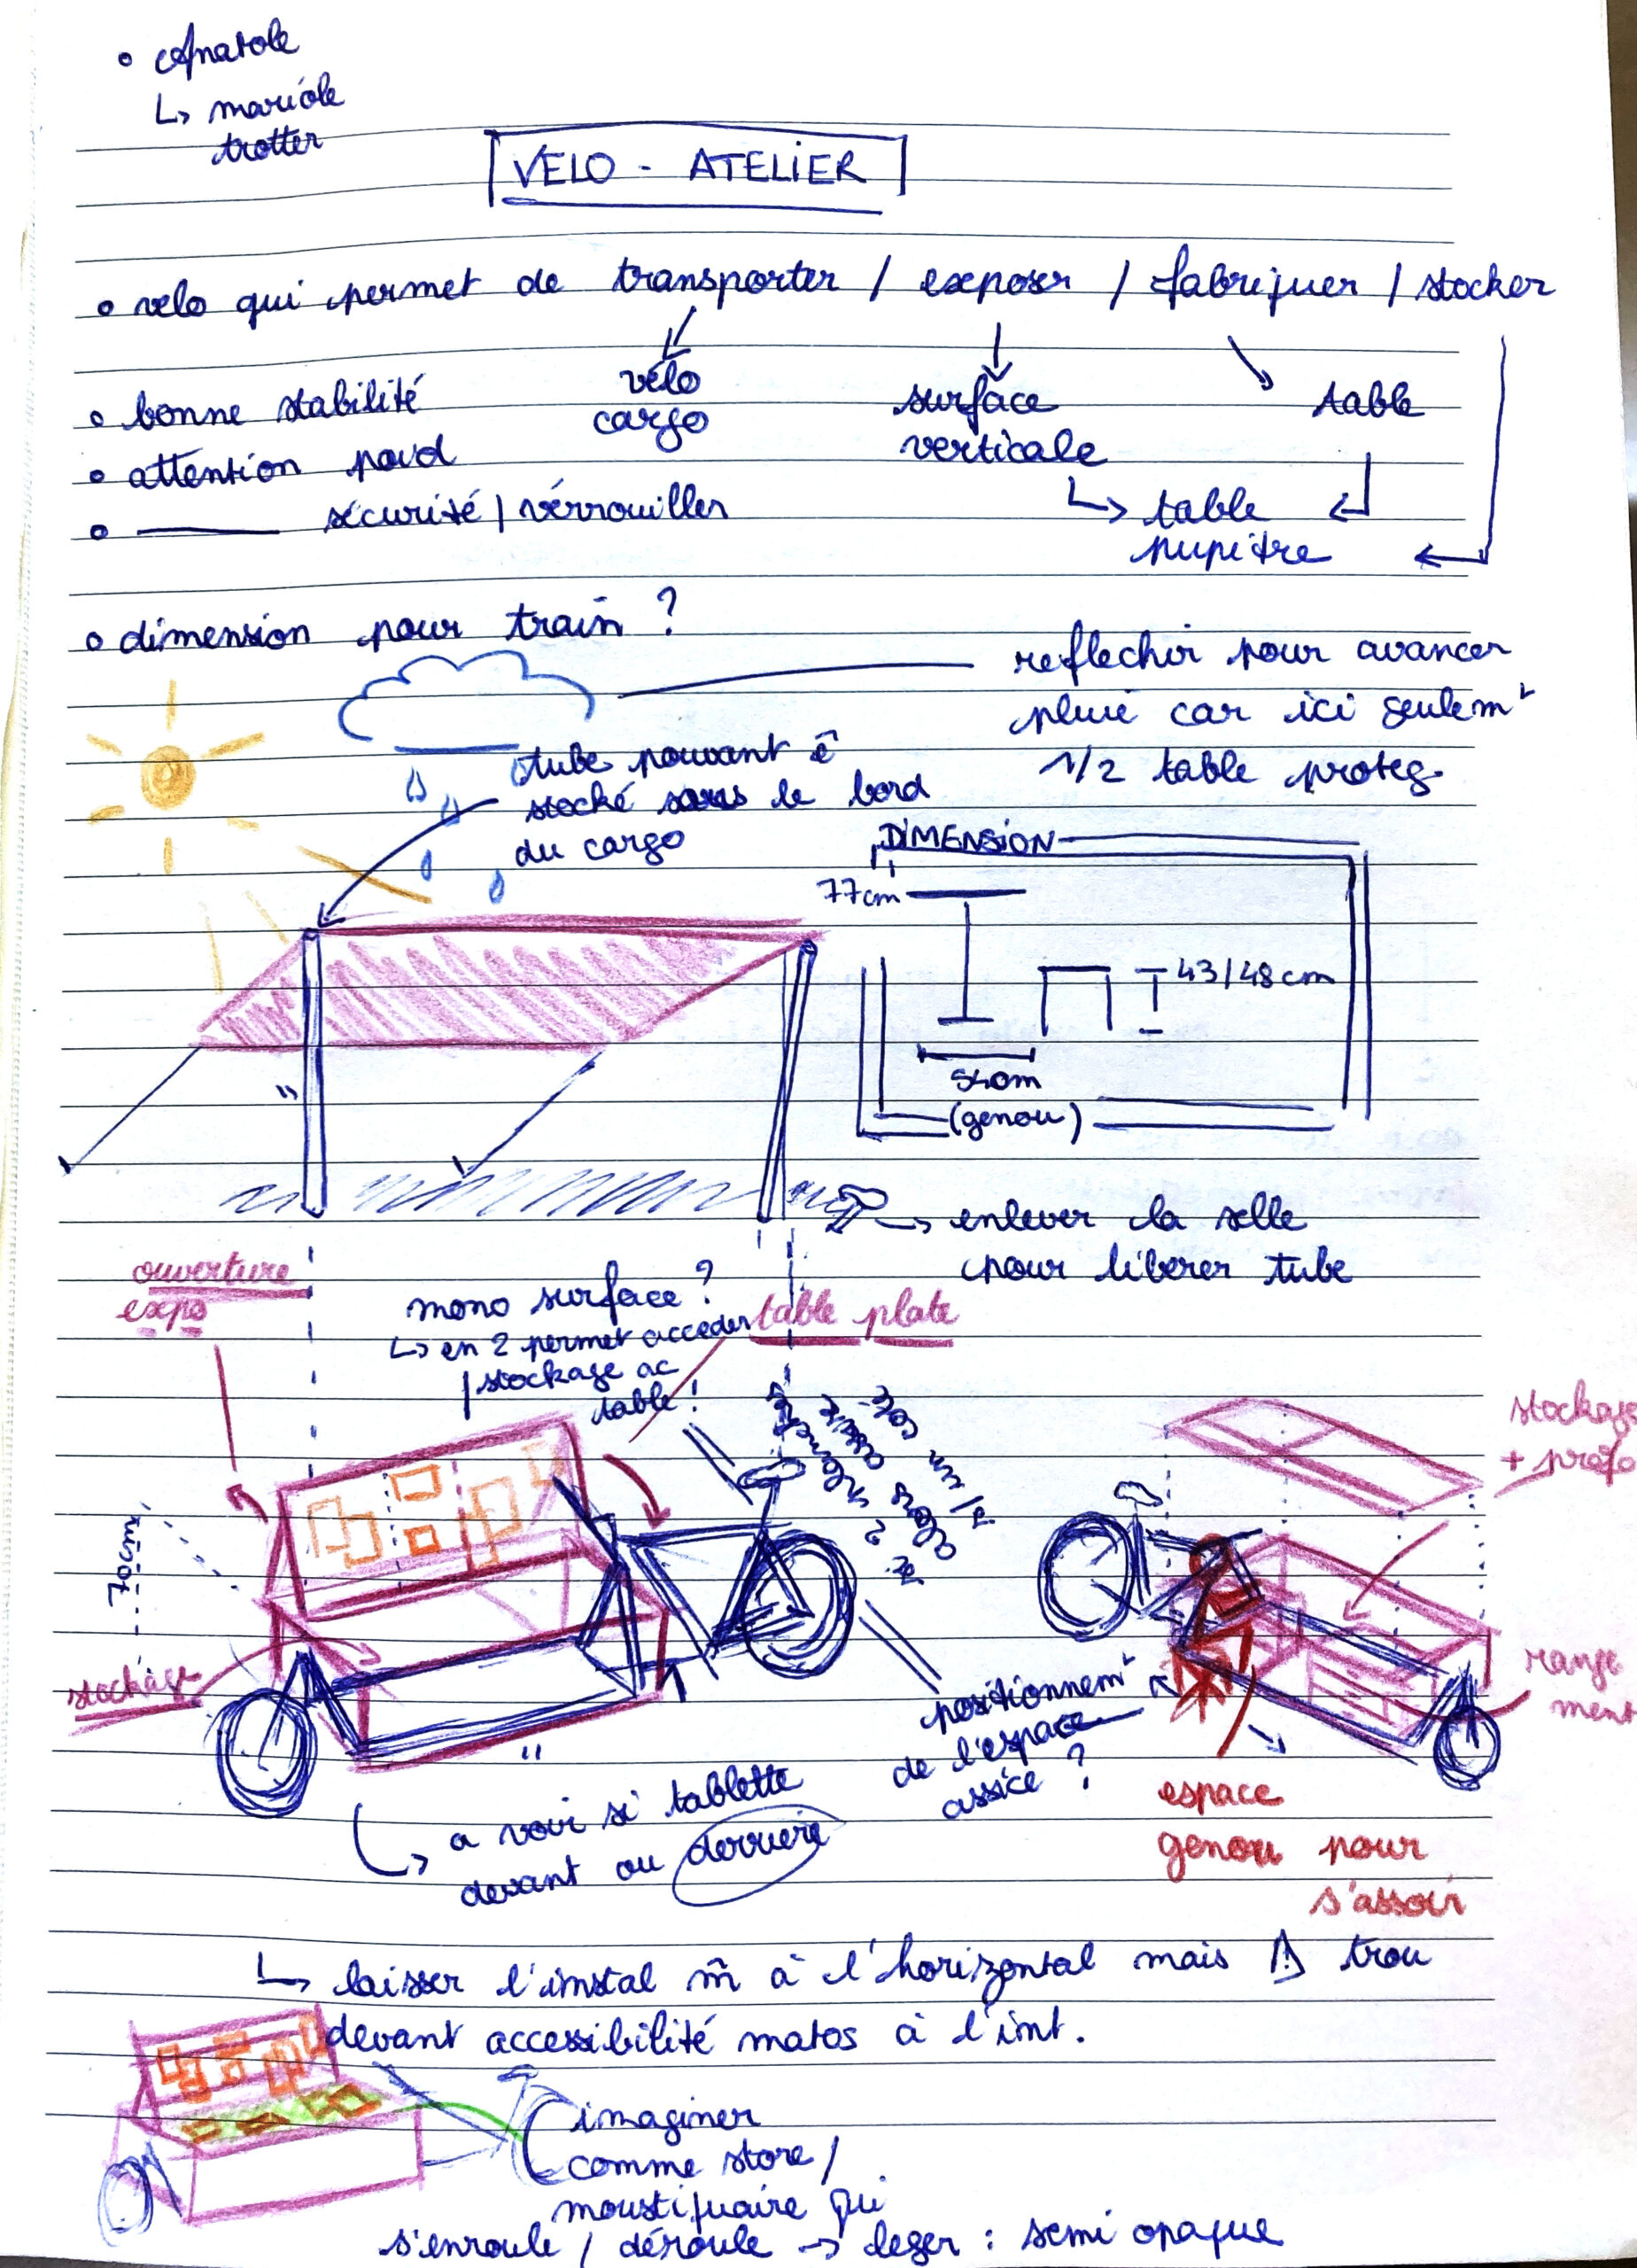 • Anatole
↳ mariole
trotter
VELO - ATELIER
• velo qui permet de transporter / exposer / fabriquer / stocker
vélo
cargo
surface
verticale
table
↳ table
pupitre
• bonne stabilité
• attention poid
• ——— sécurité / vérrouiller
• dimension pour train ?
reflechir pour avancer
pluie car ici seulemt
1/2 table proteg.
tube pouvant ê
stocké sous le bord
du cargo
DIMENSION
77cm
43/48cm
54cm
(genou)
→ enlever la selle
pour libérer tube
ouverture
expo
mono surface ?
↳ en 2 permet acceder
stockage ac
table !
table plate
côté
70cm
stockage
stockage
+ profo
range
ment
positionnemt
de l'espace
assice ?
espace
genou pour
s'assoir
↳ a voir si tablette
devant ou derriere
↳ laisser l'instal m̃ à l'horizontal mais ⚠ trou
devant accessibilité matos à l'int.
imaginer
comme store /
moustiquaire qui
s'enroule / déroule → leger : semi opaque